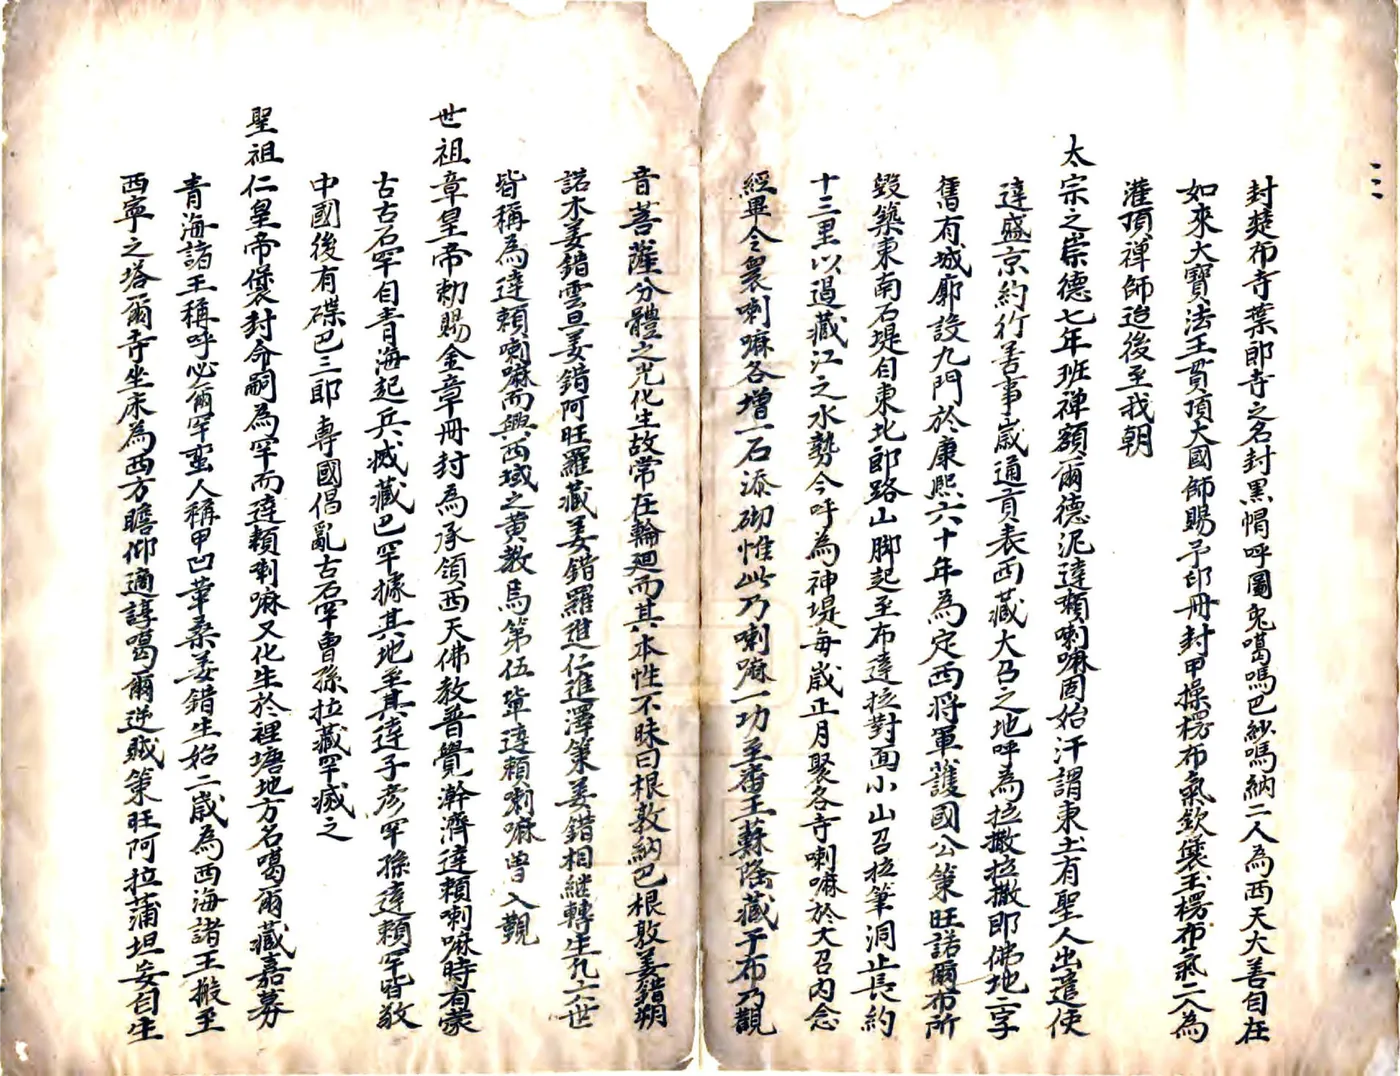 封楚布寺葉郎寺之名封黑帽呼圖克噶嗎巴紗嗎納二人為西天大善自在
如來大寶法王貫頂大國師賜予印冊封甲操楞布氣欽奘玉楞布氣二人為
灌頂禅師迨後至我朝
太宗之崇德七年班禅額爾德泥達賴喇嘛固始汗謂東土有聖人出遣使
達盛京約行善事歲通貢表西藏大召之地呼為拉撒拉撒即佛地二字
舊有城廓設九門於康熙六十年為定西將軍護國公策旺諾爾布所
毀築東南石堤自東北郎路山脚起至布達拉對面小山召拉筆洞止長約
十三里以過藏江之水勢今呼為神堤每歲正月聚各寺喇嘛於大召內念
經畢令衆喇嘛各增一石添砌惟此乃喇嘛一功至番王蘇隆藏干布乃觀
音菩薩分體之光化生故常在輪廻而其本性不昧曰根敦納巴根敦姜錯朔
諾木姜錯雲旦姜錯阿旺羅藏姜錯羅進仁進澤策姜錯相繼轉生凡六世
皆稱為達賴喇嘛而興西域之黄教焉第伍輩達賴喇嘛曾入覲
世祖章皇帝勅賜金章冊封為承領西天佛教普覺幹濟達賴喇嘛時有蒙
古古石罕自青海起兵滅藏巴罕據其地至其達子彦罕孫達賴罕皆敬
中國後有碟巴三耶專國倡亂古石罕曾孫拉藏罕滅之
聖祖仁皇帝褒封命嗣為罕而達賴喇嘛又化生於裡塘地方名噶爾藏嘉募
青海諸王稱呼必爾罕蛮人稱甲凹華桑姜錯生始二歲為西海諸王搬至
西寧之塔爾寺坐床為西方瞻仰適諄噶爾逆賊策旺阿拉蒲坦妄自生